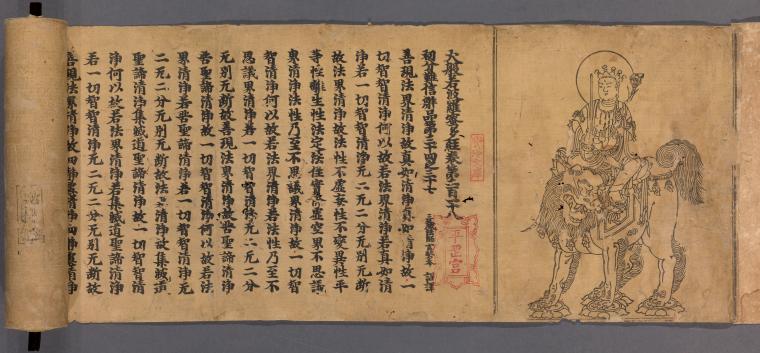 大般若波羅蜜多經卷第二百二十八
初分難信解品第三十四之三十七
三藏法師玄奘奉 詔譯
善現法界清淨故真如清淨真如清淨故一
切智智清淨何以故若法界清淨若真如清
淨若一切智智清淨无二无二分无別无斷
故法界清淨故法性不虛妄性不變異性平
等性離生性法定法住實際虛空界不思議
界清淨法性乃至不思議界清淨故一切智
智清淨何以故若法界清淨若法性乃至不
思議界清淨若一切智智清淨无二无二分
无別无斷故善現法界清淨故苦聖諦清淨
苦聖諦清淨故一切智智清淨何以故若法
界清淨若苦聖諦清淨若一切智智清淨无
二无二分无別无斷故法界清淨故集滅道
聖諦清淨集滅道聖諦清淨故一切智智清
淨何以故若法界清淨若集滅道聖諦清淨
若一切智智清淨无二无二分无別无斷故
善現法界清淨故四靜慮清淨四靜慮清淨